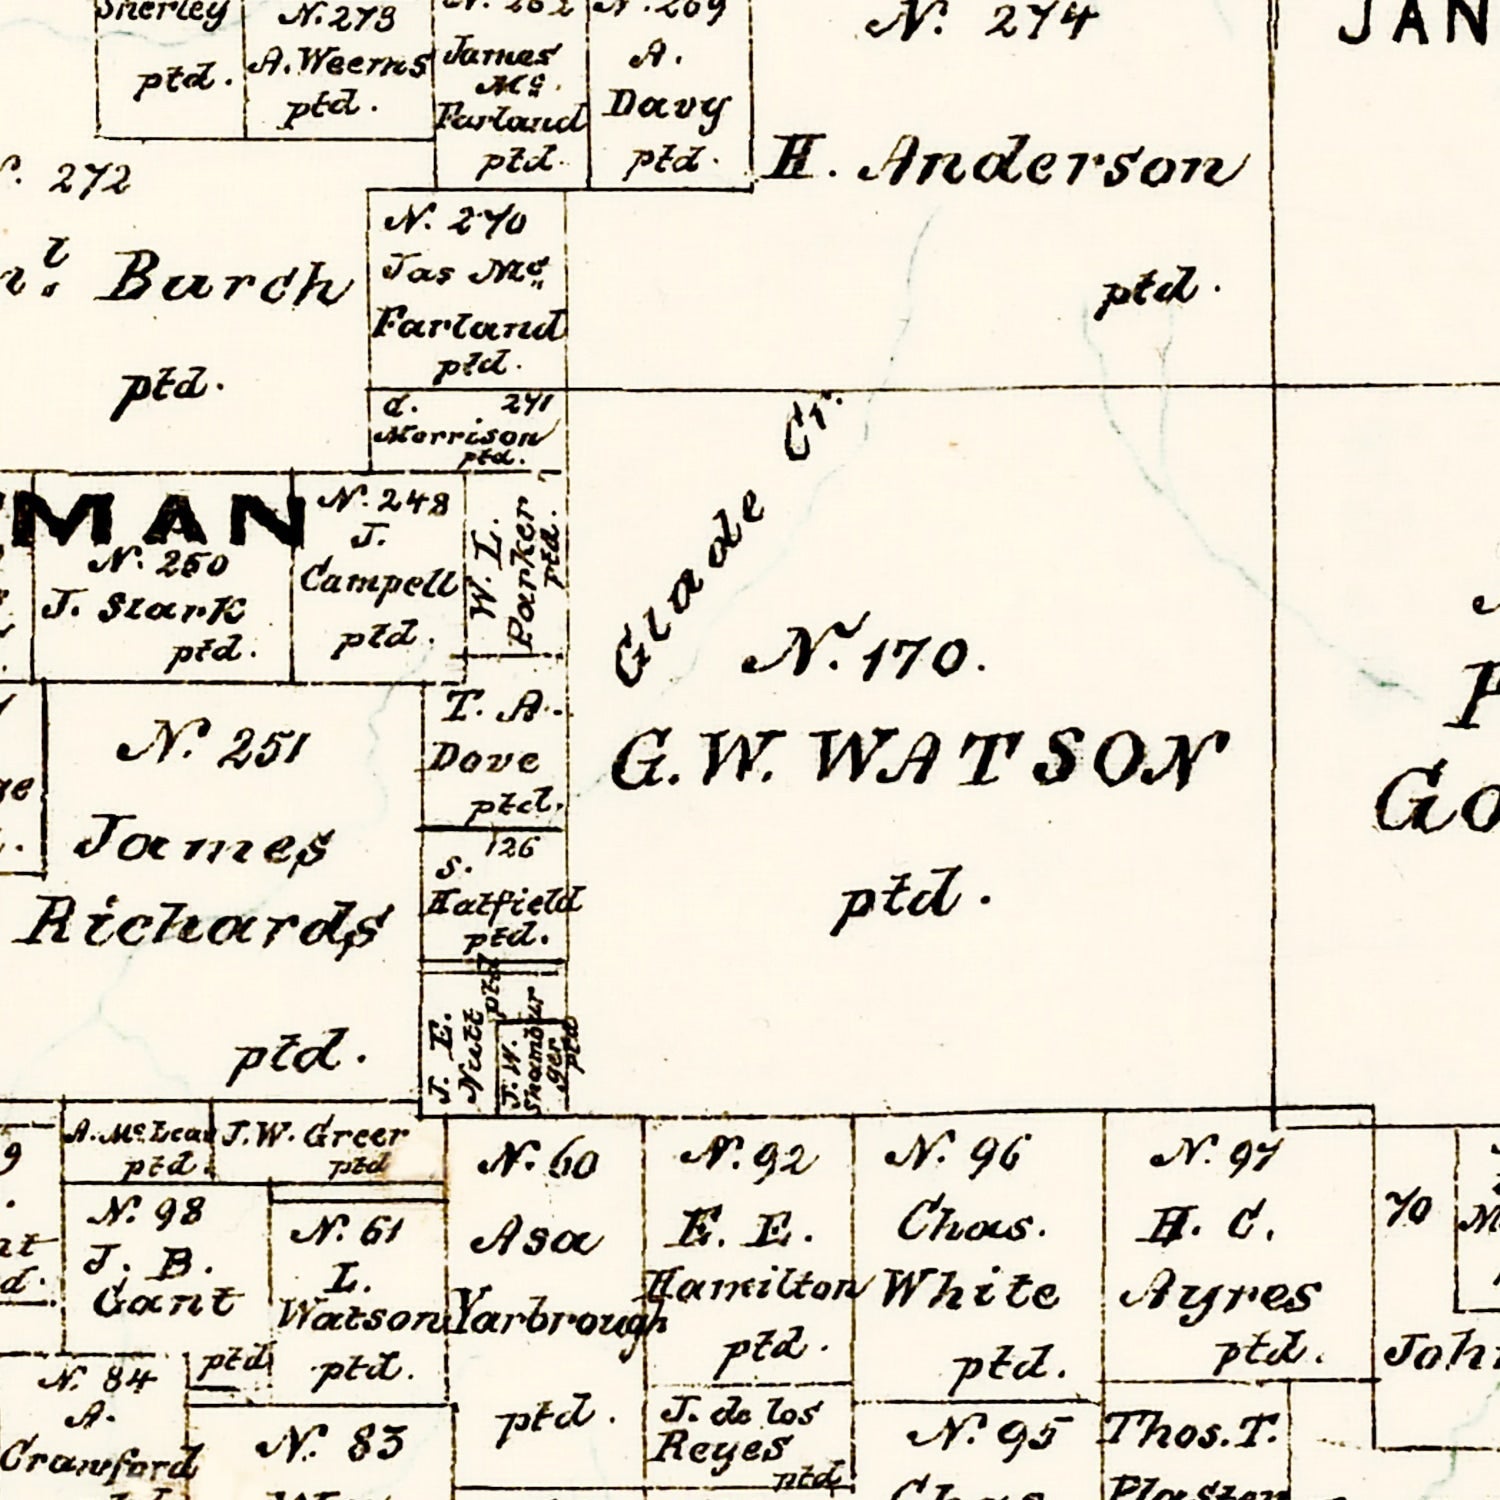 Sherley
ptd.
N. 273
A. Weems
ptd.
James
Mc.
Farland
ptd.
A.
Davy
ptd.
N. 274
H. Anderson
ptd.
JAN
272
Burch
ptd.
N. 270
Jas Mc
Farland
ptd.
271
Morrison
ptd.
MAN
N. 250
J. Stark
ptd.
N. 248
J.
Campell
ptd.
W. L.
Parker
ptd.
Glade Cr.
N. 170.
G. W. WATSON
ptd.
N. 251
James
Richards
ptd.
T. A.
Dove
ptd.
126
S.
Hatfield
ptd.
J. E.
Nutt
ptd
J. W.
Shambur
ger
ptd
Go
A. McLean
ptd.
J. W. Greer
ptd
N. 98
J. B.
Gant
ptd
N. 61
L.
Watson
ptd.
N. 60
Asa
Yarbrough
ptd.
N. 92
E. E.
Hamilton
ptd.
N. 96
Chas.
White
ptd.
N. 97
H. C.
Ayres
ptd.
70
John
N. 84
A.
Crawford
N. 83
J. de los
Reyes
ptd
N. 95
Chas
Thos. T.